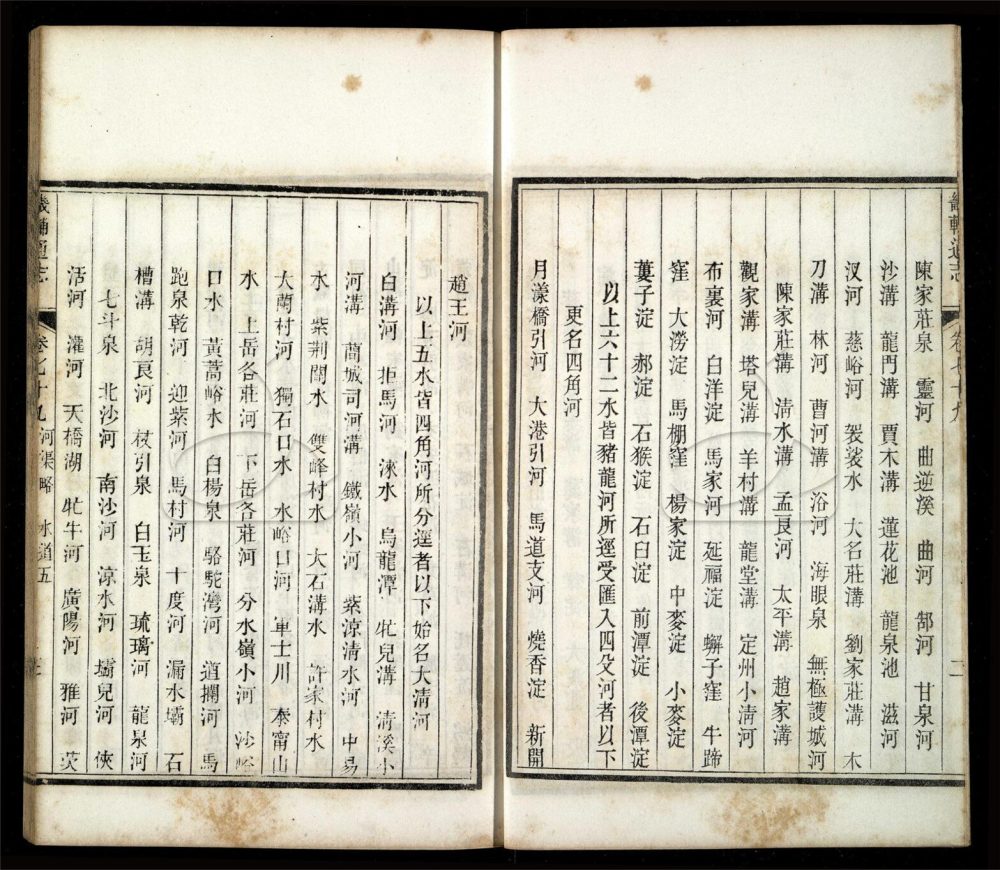 陳家莊泉 靈河 曲逆溪 曲河 郜河 甘泉河
沙溝 龍門溝 賈木溝 蓮花池 龍泉池 滋河
汊河 慈峪河 袈裟水 大名莊溝 劉家莊溝 木
刀溝 林河 曹河溝 浴河 海眼泉 無極護城河
陳家莊溝 清水溝 孟良河 太平溝 趙家溝
觀家溝 塔兒溝 羊村溝 龍堂溝 定州小清河
布裏河 白洋淀 馬家河 延福淀 蠏子窪 牛蹄
窪 大澇淀 馬棚窪 楊家淀 中麥淀 小麥淀
蔞子淀 郝淀 石猴淀 石臼淀 前潭淀 後潭淀
以上六十二水皆豬龍河所逕受匯入四役河者以下
更名四角河
月漾橋引河 大港引河 馬道支河 燒香淀 新開
畿輔通志 卷七十九 河渠略 水道五
趙王河
以上五水皆四角河所分逕者以下始名大清河
白溝河 拒馬河 淶水 烏龍潭 牤兒溝 清溪小
河溝 蔄城司河溝 鐵嶺小河 紫涼清水河 中易
水 紫荆關水 雙峰村水 大石溝水 許家村水
大蘭村河 獨石口水 水峪口河 軍士川 奉甯山
水 上岳各莊河 下岳各莊河 分水嶺小河 沙峪
口水 黃蒿峪水 白楊泉 駱駝灣河 道攔河 馬
跑泉乾河 迎紫河 馬村河 十度河 漏水壩 石
槽溝 胡良河 杖引泉 白玉泉 琉璃河 龍泉河
七斗泉 北沙河 南沙河 涼水河 壩兒河 俠
活河 灌河 天橋湖 牤牛河 廣陽河 雅河 茨